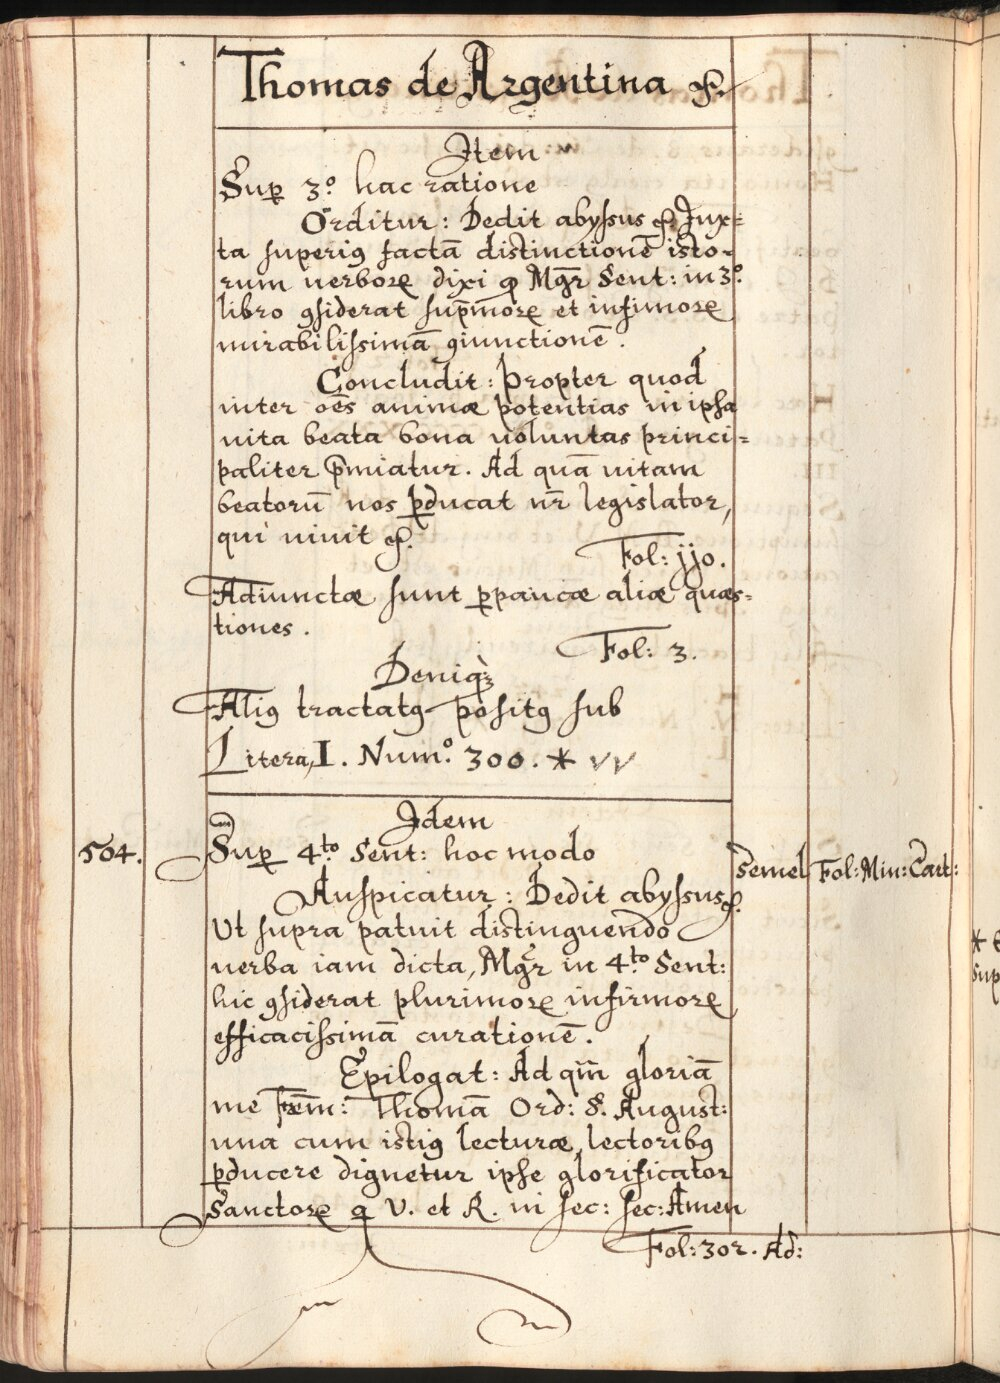 Thomas de Argentina &c.
Item
Sup 3.º hac ratione
Orditur: Dedit abyssus &c. Jux=
ta superiꝰ factā distinctionē isto-
rum uerboꝝ dixi ꝙ Mḡr Sent: in 3.º
libro ꝯsiderat sup̄moꝝ et infimoꝝ
mirabilissimā ꝯiunctionē.
Concludit: Propter quod
inter oēs animæ potentias in ipsa
uita beata bona uoluntas princi=
paliter p̄miatur. Ad quā uitam
beatorū nos ꝑducat nr̄ legislator,
qui uiuit &c.
Fol: jjo.
Adiunctæ sunt ꝑpaucæ aliæ quæs=
tiones.
Fol: 3.
Deniqꝫ
Aliꝰ tractatꝰ positꝰ sub
Litera, I. Num.º 300. * vv
Idem
504.
Sup 4.to Sent: hoc modo
semel
Fol: Min: Cart:
Auspicatur: Dedit abyssus &c.
Ut supra patuit distinguendo
uerba iam dicta, Mḡr in 4.to Sent:
hic ꝯsiderat plurimoꝝ infirmoꝝ
efficacissimā curationē.
Epilogat: Ad qm̄ gloriā
me frēm: Thomā Ord: S. August:
una cum istiꝰ lecturæ lectoribꝰ
ꝑducere dignetur ipse glorificator
Sanctoꝝ q V. et R. in sec: sec: Amen
Fol: 302. Ad:
* 
sup